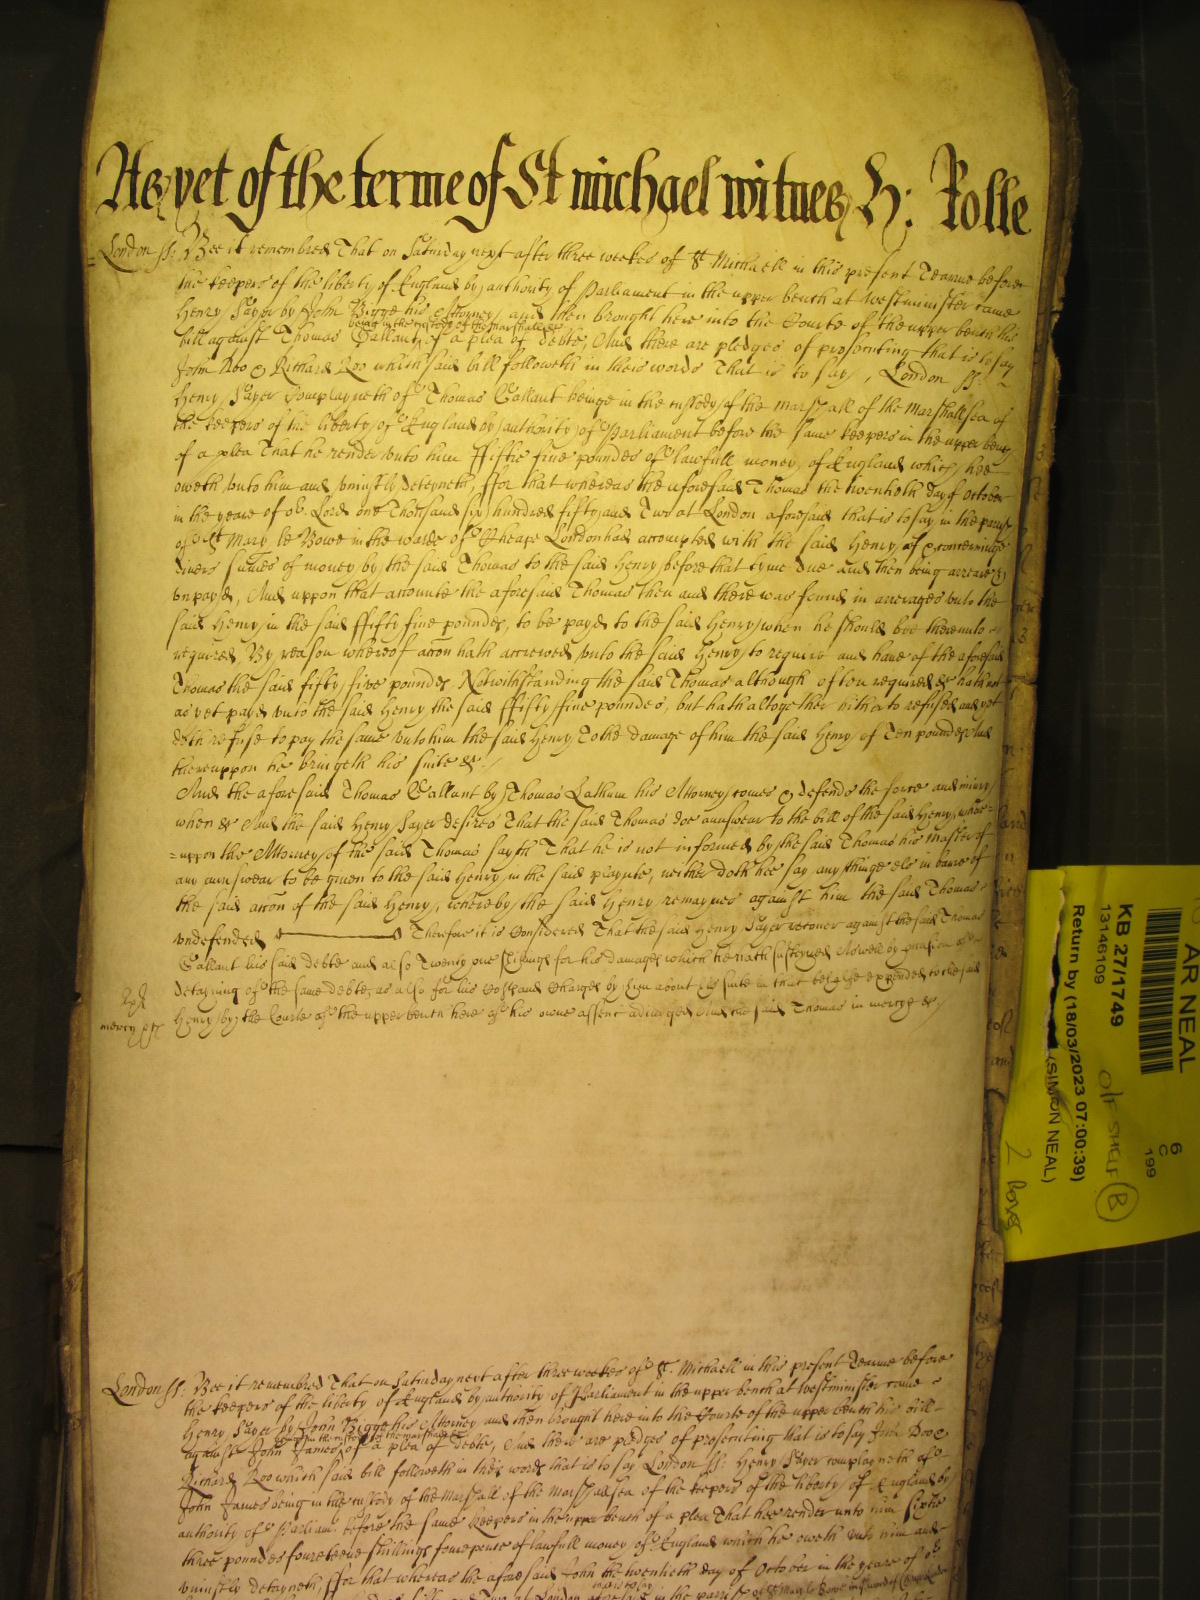 As yet of the terme of St michael witnes H: Rolle
London ss: Bee it remembred That on Saturday next after three weekes of St Michaell in this present Tearme before
the keepers of the liberty of England by authority of Parliament in the upper bench at Westminister came
Henry Sayer by John Bigge his Attorney and then brought here into the Courte of the upper bench his
being in the custody of the marshall &c
bill against Thomas Gallant, of a plea of debte, And there are pledges of prosecuting that is to say
John Doo & Richard Roo which said bill followeth in theis words That is to say, London ss:
Henry Sayer Complayneth of Thomas Gallant beinge in the custody of the marshall of the Marshallsea of
the keepers of the liberty of England by authority of Parliament before the same keepers in the upper bench
of a plea That he render unto him ffiftie five poundes of lawfull money of England which hee
oweth unto him and uniustly deteyneth, ffor that whereas the aforesaid Thomas the twentieth day of October
in the yeare of or. Lord one Thousand six hundred fifty and Two at London aforesaid that is to say in the parish
of St Mary le Bowe in the warde of Cheape London had accompted with the said Henry, of & concerninge
divers sumes of money by the said Thomas to the said Henry before that tyme due and then being arreare &
unpayd, And uppon that accounte the aforesaid Thomas then and there was found in arrerages unto the
said Henry in the said ffifty five poundes, to be payd to the said Henry when he should bee thereunto
required, By reason whereof accon hath accrewed unto the said Henry to require and have of the aforesaid
Thomas the said fifty five poundes Notwithstanding the said Thomas although often required &c hath not
as yet payd unto the said Henry the said ffifty ffive poundes, but hath altogether hitherto refused and yet
doth refuse to pay the same unto him the said Henry, To the damage of him the said Henry of Ten poundes And
thereuppon he bringeth his suite &c
And the aforesaid Thomas Gallant by Thomas Lathum his Attorney comes & defends the force and iniury
when &c And the said Henry Sayer desires That the said Thomas doe answear to the bill of the said Henry, where=
=uppon the Attorney of the said Thomas sayth That he is not informed by the said Thomas his Master of
any answear to be given to the said Henry in the said playnte, neither doth hee say any thinge els in barre of
the said accon of the said Henry, whereby the said Henry remaynes against him the said Thomas
undefended Therefore it is Considered That the said Henry Sayer recover against the said Thomas
Gallant his said debte and also Twenty one shillings for his damages which he hath susteyned Aswell by occasion of
detayning of the same debte, as also for his Costs and Charges by him about his suite in that behalfe expended to the said
Henry by the Courte of the upper bench here of his owne assent adiudged And the said Thomas in mercy &c
mercy
London ss: Bee it remembred That on Saturday next after three weekes of St. Michaell in this present Tearme before
the keepers of the liberty of England by authority of Parliament in the upper bench at Westminister came
Henry Sayer by John Bigge his Attorney and then brought here into the Courte of the upper bench his bill
being in the custody of the marshall &c
against John James, of a plea of debte, And there are pledges of prosecuting that is to say John Doo &
Richard Roo which said bill followeth in theis words that is to say London ss: Henry Sayer complayneth of
John James being in the custody of the Marshall of the Marshallsea of the keepers of the liberty of England by
authority of Parliam. before the same keepers in the upper bench of a plea That hee render unto him Sixtie
three poundes fourteene shillings fourepence of lawfull money of England which he oweth unto him and
uniustly detayneth, ffor that whereas the aforesaid John the twentieth day of October in the yeare of or
that is to say
Two at London aforesaid in the parish of St Mary le Bowe in the ward of Cheape London
AR NEAL
KB 27/1749
13146109
Return by (18/03/2023 07:00:39)
(SIMON NEAL)
6
C
199
B
2